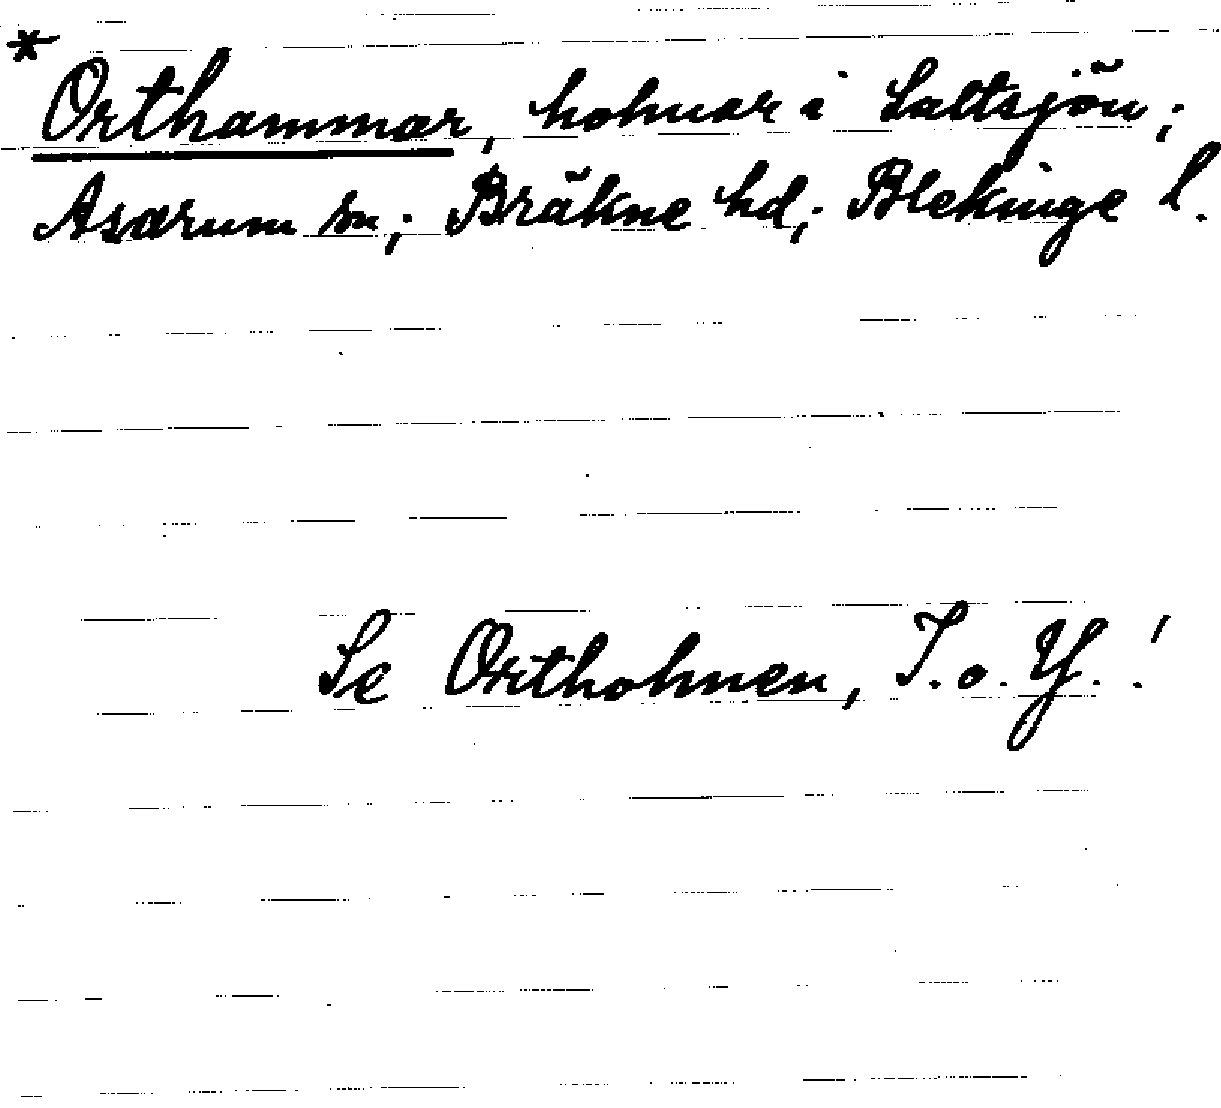 * Orthammar, holmar i Saltsjön;
Asarum sn; Bräkne hd; Blekinge l.
Se Ortholmen, I. o. Y.!